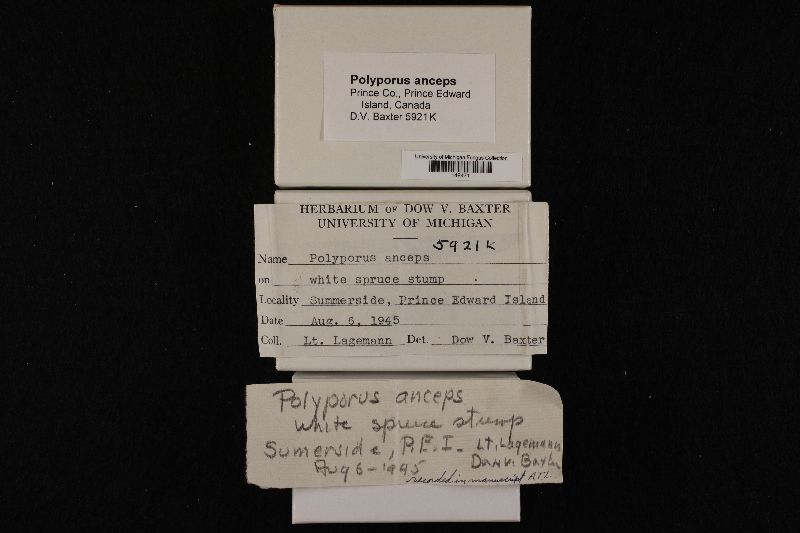 Polyporus anceps
Prince Co., Prince Edward
Island, Canada
D.V. Baxter 5921K
University of Michigan Fungus Collection
HERBARIUM OF DOW V. BAXTER
UNIVERSITY OF MICHIGAN
5921K
Name Polyporus anceps
on white spruce stump
Locality Summerside, Prince Edward Island
Date Aug. 6, 1945
Coll. Lt. Lagemann Det. Dow V. Baxter
Polyporus anceps
white spruce stump
Sumerside, P.E.I. Lt. Lagemann
Aug 6-1945 Dow V. Baxter
recorded in manuscript